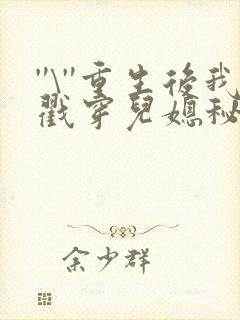 "\"重生後我
戳穿兒媳秘
余少群